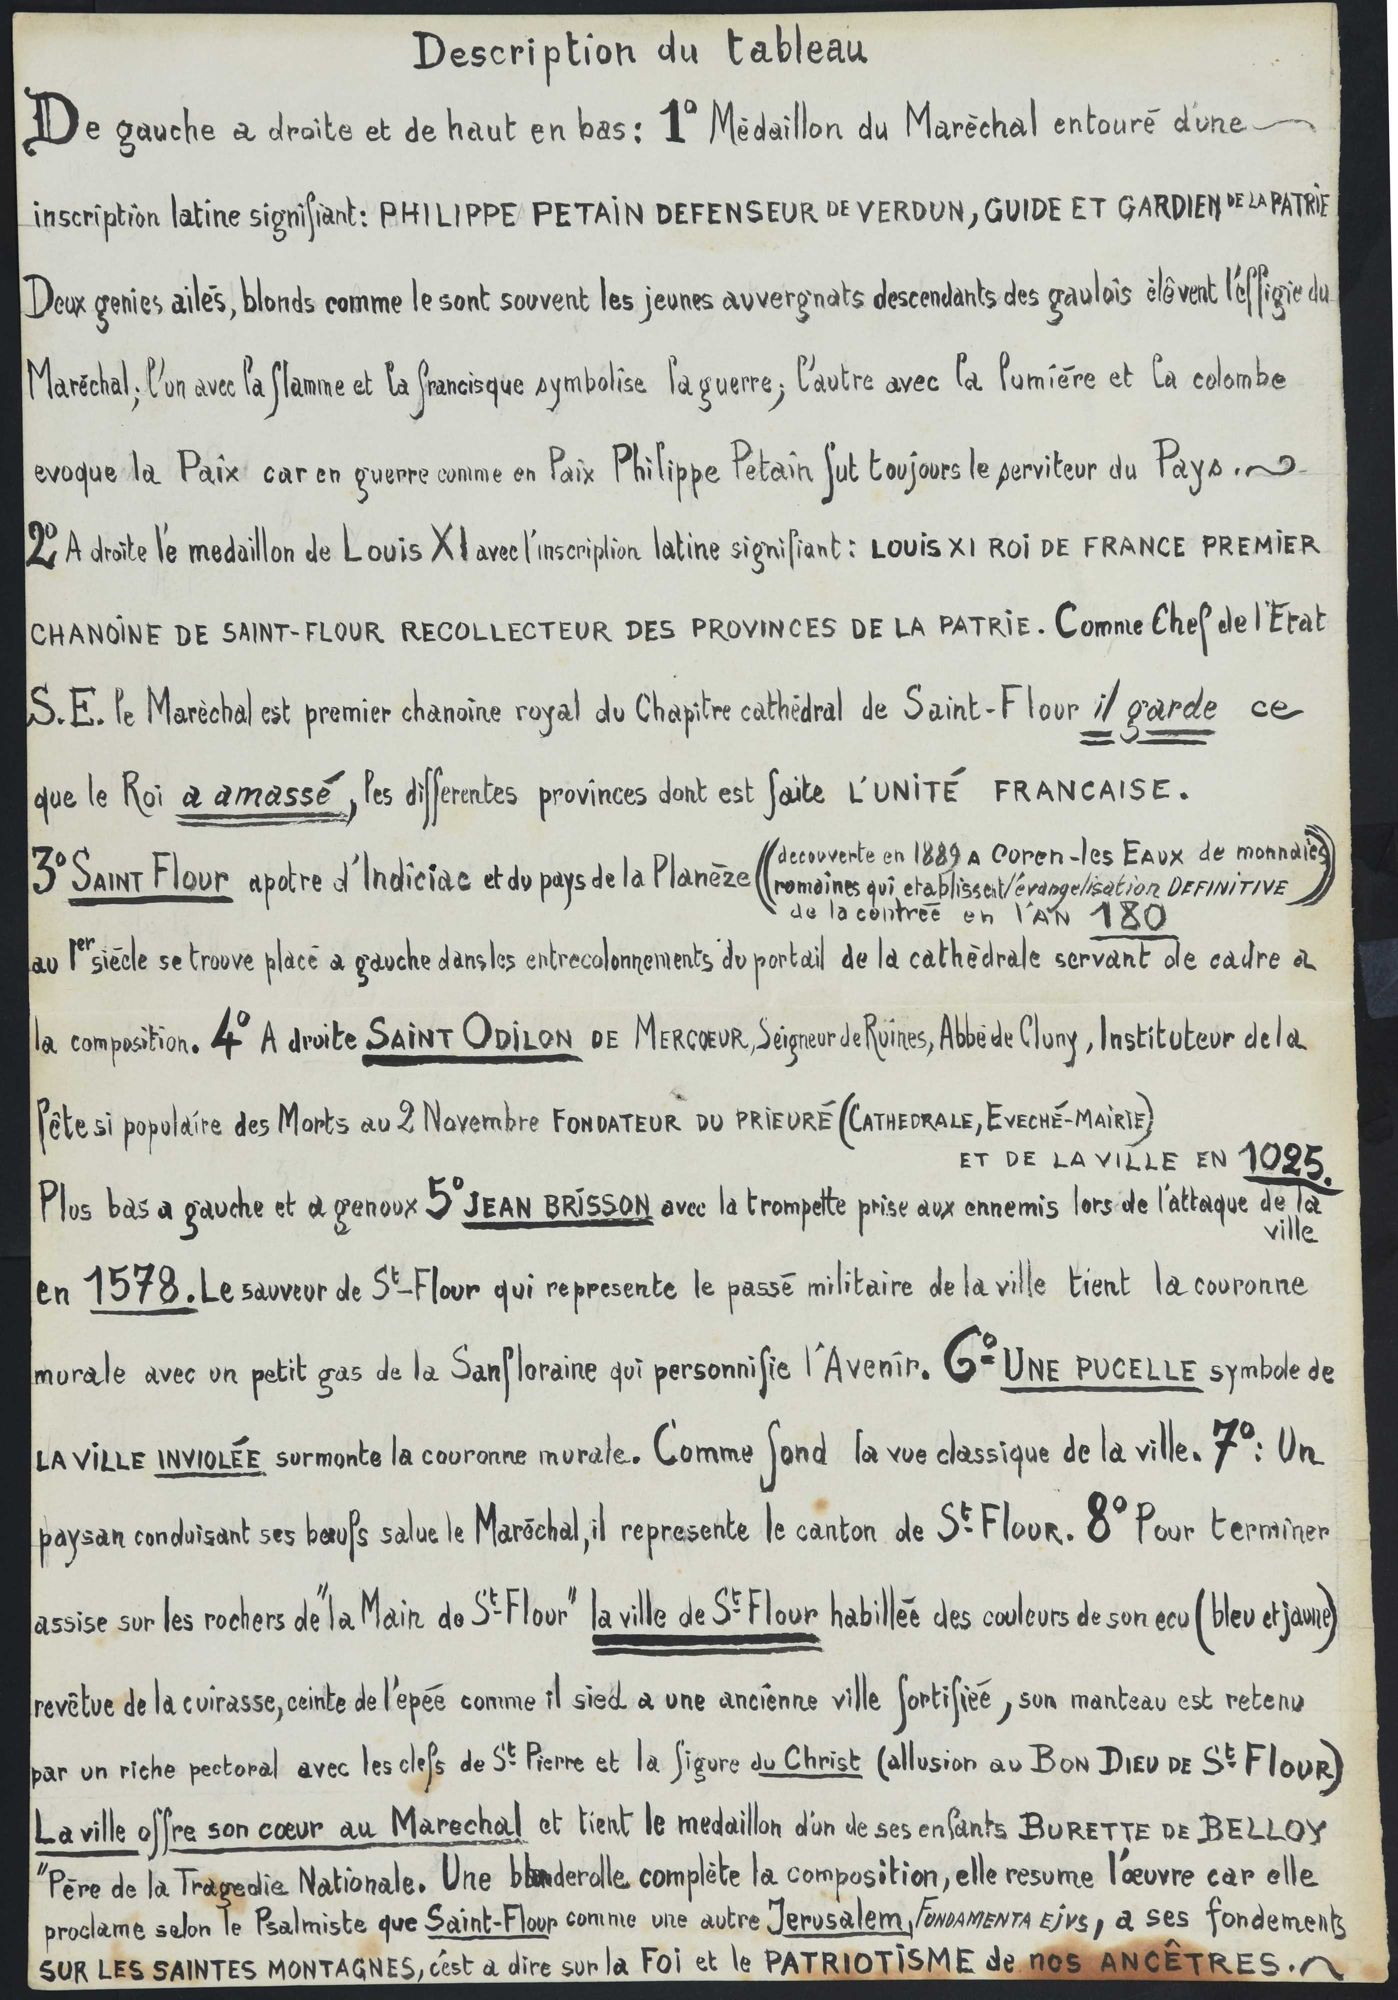 Description du tableau
De gauche a droite et de haut en bas: 1º Mèdaillon du Marèchal entouré d'une
inscription latine signifiant: PHILIPPE PETAIN DEFENSEUR DE VERDUN, GUIDE ET GARDIEN DE LA PATRIE
Deux genies ailés, blonds comme le sont souvent les jeunes auvergnats descendants des gaulois élêvent l'éffigie du
Maréchal; l'un avec la flamme et la francisque symbolise la guerre; l'autre avec la lumiére et la colombe
evoque la Paix car en guerre comme en Paix Philippe Petain fut toujours le serviteur du Pays.
2º A droite le medaillon de Louis XI avec l'inscription latine signifiant: LOUIS XI ROI DE FRANCE PREMIER
CHANOINE DE SAINT-FLOUR RECOLLECTEUR DES PROVINCES DE LA PATRIE. Comme Chef de l'Etat
S.E. le Marèchal est premier chanoine royal du Chapitre cathédral de Saint-Flour il garde ce
que le Roi a amassé, les differentes provinces dont est faite L'UNITÉ FRANCAISE.
3º SAINT FLOUR apotre d'Indiciac et du pays de la Planèze ((decouverte en 1889 A Coren-les EAUX de monnaies
romaines qui etablissent l'évangelisation DEFINITIVE))
de la contréé en l'AN 180
au 1er siécle se trouve placé a gauche dans les entrecolonnements du portail de la cathèdrale servant de cadre a
la composition. 4º A droite SAINT ODILON DE MERCŒUR, Seigneur de Ruines, Abbé de Cluny, Instituteur de la
fête si populaire des Morts au 2 Novembre FONDATEUR DU PRIEURÉ (CATHEDRALE, EVECHÉ-MAIRIE)
ET DE LA VILLE EN 1025.
Plus bas a gauche et a genoux 5º JEAN BRISSON avec la trompette prise aux ennemis lors de l'attaque de la
ville
en 1578. Le sauveur de St-Flour qui represente le passé militaire de la ville tient la couronne
murale avec un petit gas de la Sanfloraine qui personnifie l'Avenir. 6º UNE PUCELLE symbole de
LA VILLE INVIOLÉE surmonte la couronne murale. Comme fond la vue classique de la ville. 7º: Un
paysan conduisant ses bœufs salue le Maréchal, il represente le canton de St-FLOUR. 8º Pour terminer
assise sur les rochers de "la Main de St-Flour" la ville de St-Flour habilléé des couleurs de son ecu (bleu et jaune)
revêtue de la cuirasse, ceinte de l'epéé comme il sied a une anciénne ville fortifiéé, son manteau est retenu
par un riche pectoral avec les clefs de St-Pierre et la figure du Christ (allusion au BON DIEU DE St-FLOUR)
La ville offre son cœur au Marechal et tient le medaillon d'un de ses enfants BURETTE DE BELLOY
"Père de la Tragedie Nationale. Une banderolle complète la composition, elle resume l'œuvre car elle
proclame selon le Psalmiste que Saint-Flour comme une autre Jerusalem, FUNDAMENTA EJVS, a ses fondements
SUR LES SAINTES MONTAGNES, c'ést a dire sur la FOI et le PATRIOTISME de nos ANCÊTRES.